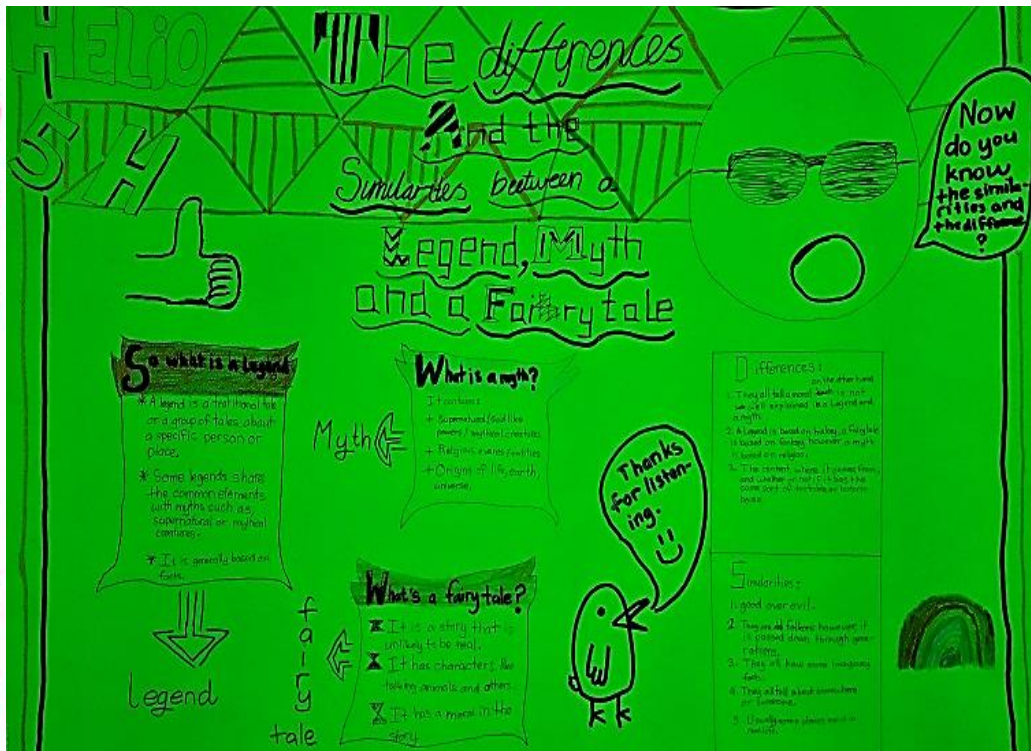 HELiO
5 H
The differences
And the
Similarties beetween a
Legend, Myth
and a Fairry tale
Now
do you
know
the simila-
rities and
the diff
?
So what is a Legend
* A legend is a traditional tale
or a group of tales about
a specific person or
place.
* Some legends share
the common elements
with myths such as,
supernatural or mythical
creatures.
* It is generally based on
facts.
legend
Myth
What is a myth?
It contains
+ Supernatural/God like
powers/mythical creatures
+ Religious /entities
+ Origins of life, earth,
universe.
fairy
tale
What's a fairy tale?
It is a story that is
unlikely to be real.
It has characters like
talking animals and others.
It has a moral in the
story.
Thanks
for listen-
ing.
Differences:
on the other hand
1. They all tell a moral is not
well explained in a Legend and
a myth.
2. A Legend is based on history, a fairytale
is based on fantasy, however a myth
is based on religion.
3. The content, where it comes from,
and whether or not if it has the
same sort of or historic
Similarities:
1. good over evil.
2. They are all folklore however it
is passed down through gene-
rations.
3. They all have some imaginary
4. They all tell about somewhere
or someone.
5. Usually some places exist in
real life.